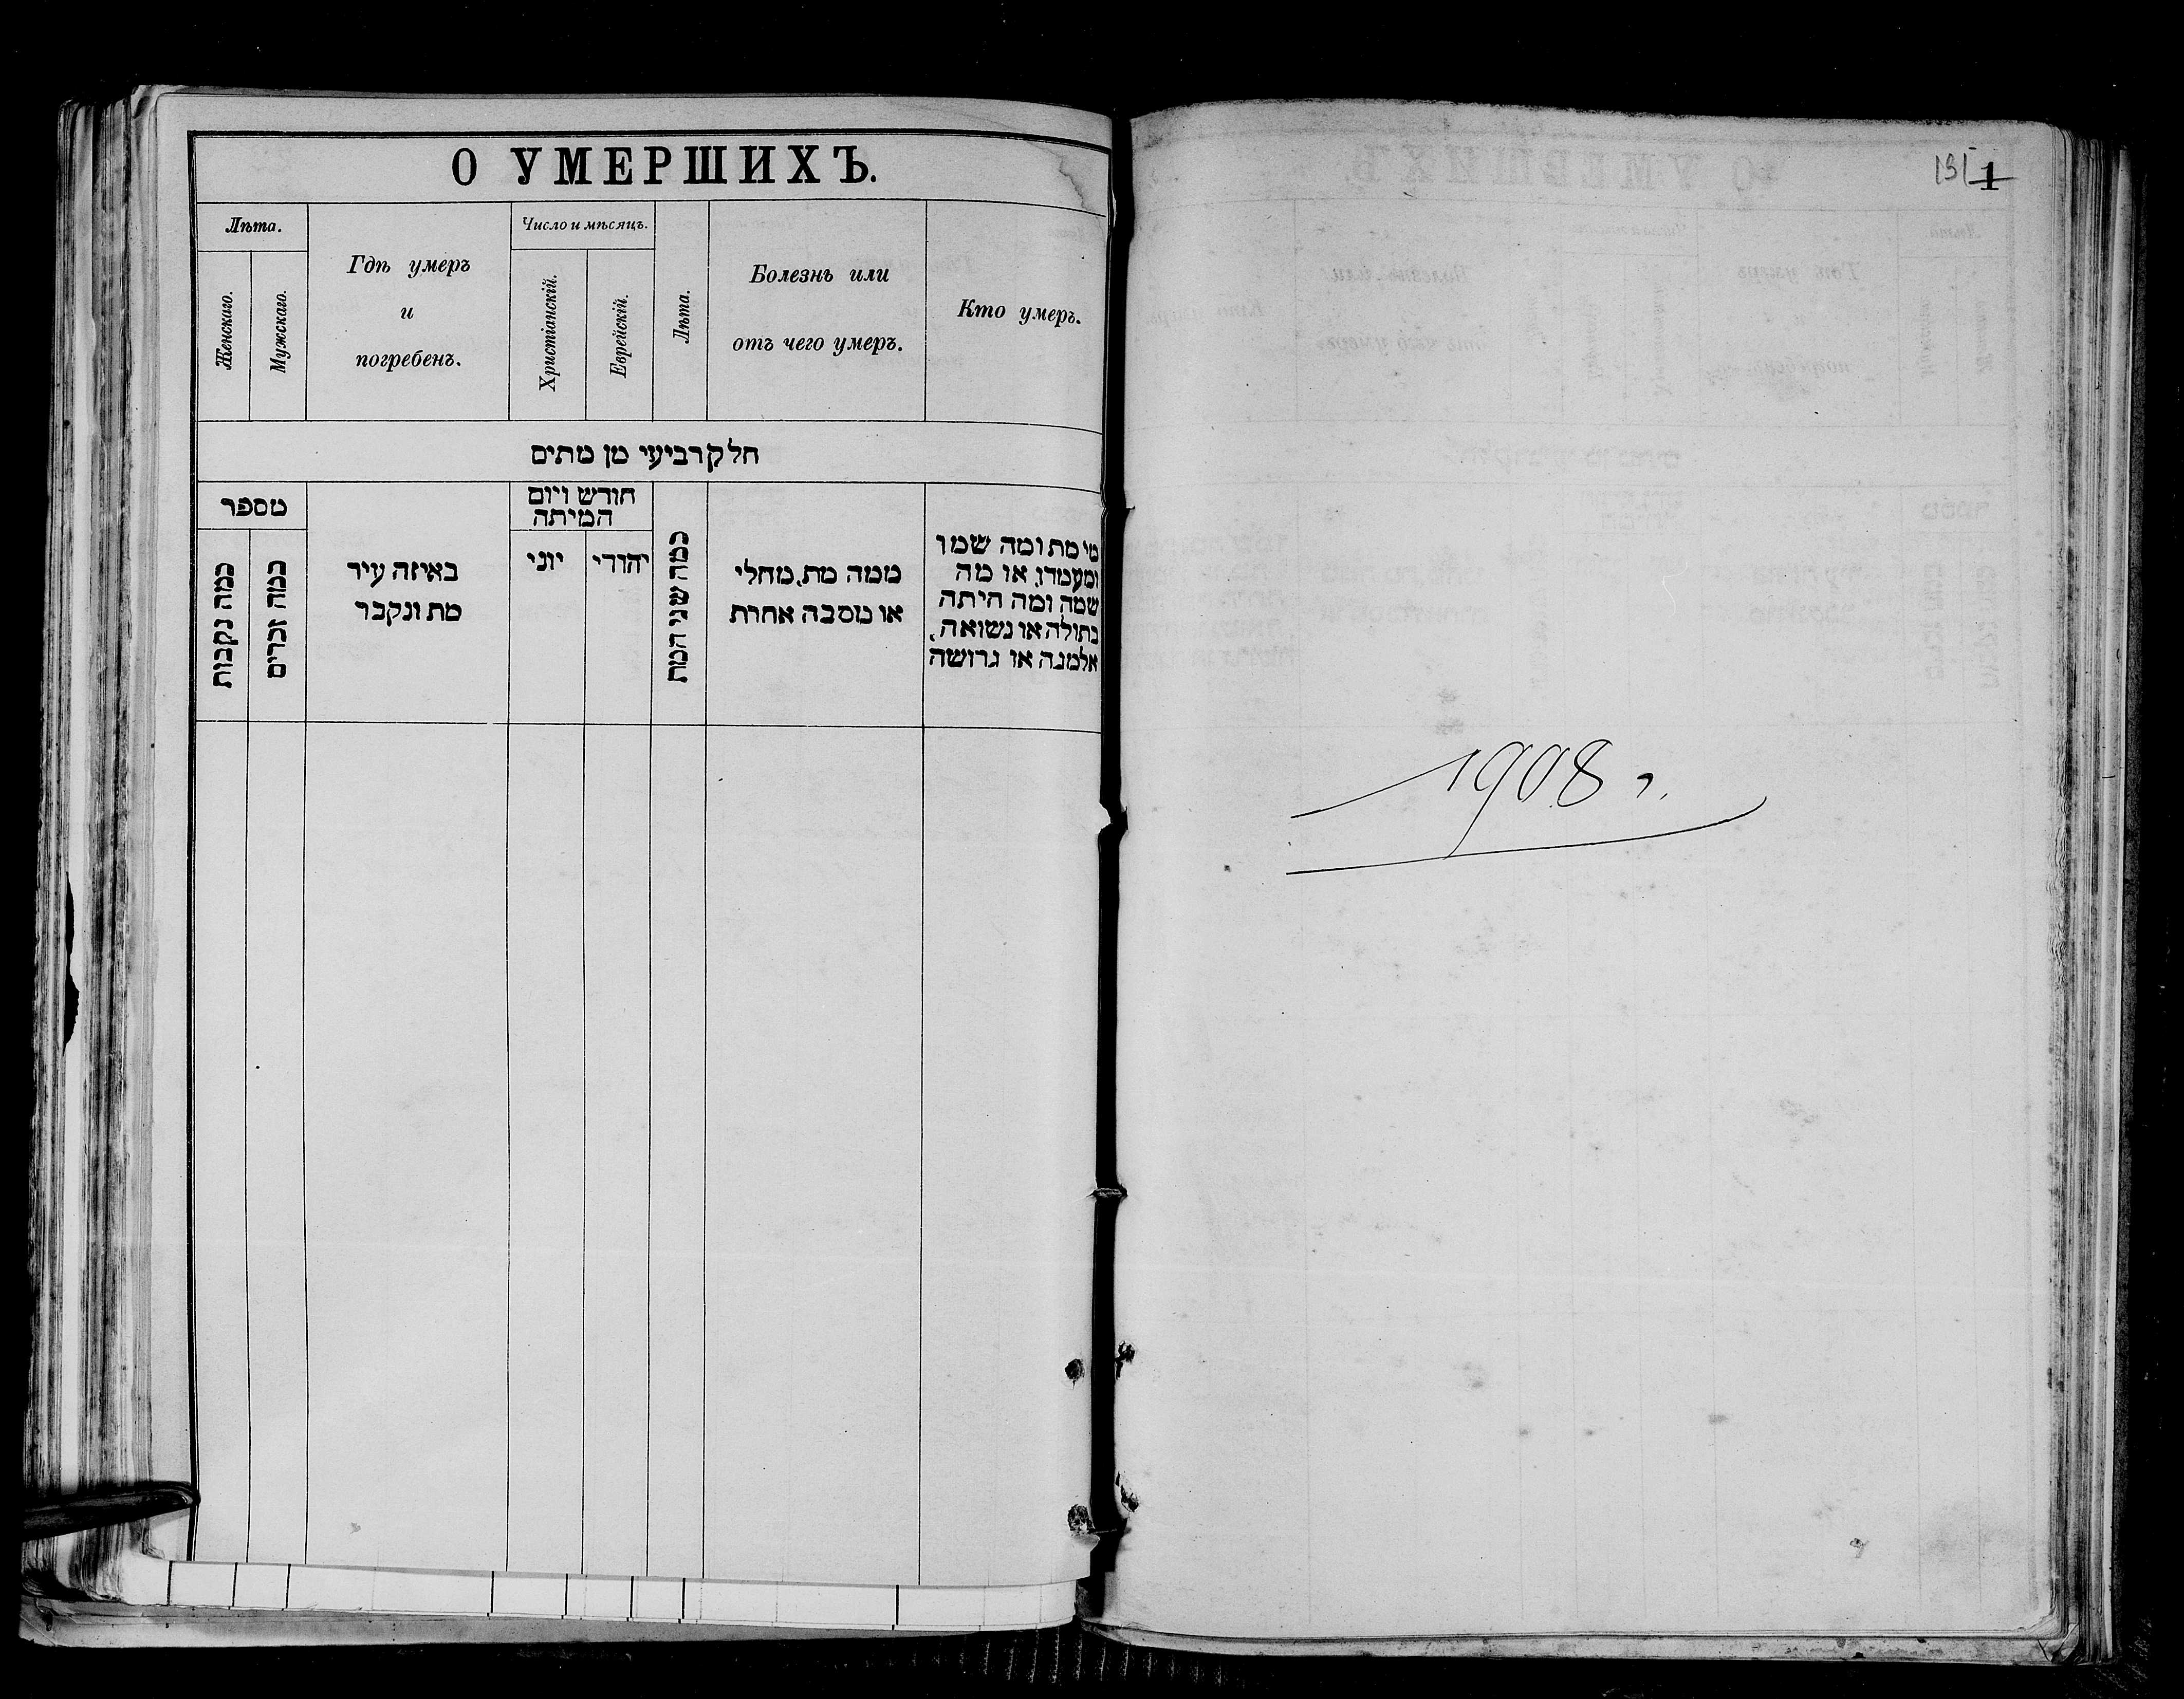 О УМЕРШИХЪ.
Лѣта.
Женскаго.
Мужскаго.
Гдѣ умеръ
и
погребенъ.
Число и мѣсяцъ.
Христіанскій.
Еврейскій.
Лѣта.
Болезнь или
отъ чего умеръ.
Кто умеръ.
חלק רביעי מן מתים
מספר
כמה נקבות
כמה זכרים
באיזה עיר
מת ונקבר
חודש ויום
המיתה
יוני
יהודי
כמה שני המת
ממה מת, מחלי
או מסבה אחרת
מי מת ומה שמו
ומעמדו, או מה
שמה ומה היתה
בתולה או נשואה,
אלמנה או גרושה
131 1
1908 г.